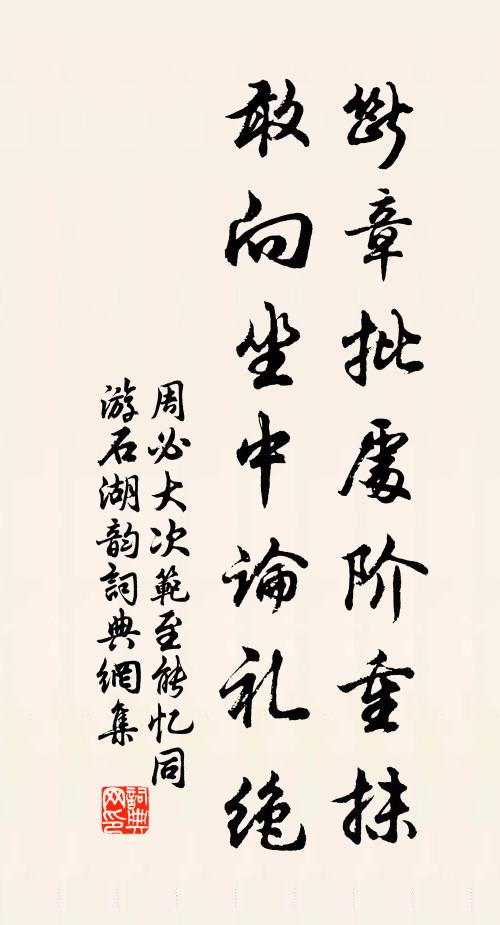 斷章批處阶重抹
敢向坐中論礼绝
周必大次範至能忆同
游石湖韵詞典網集
詞典
网印